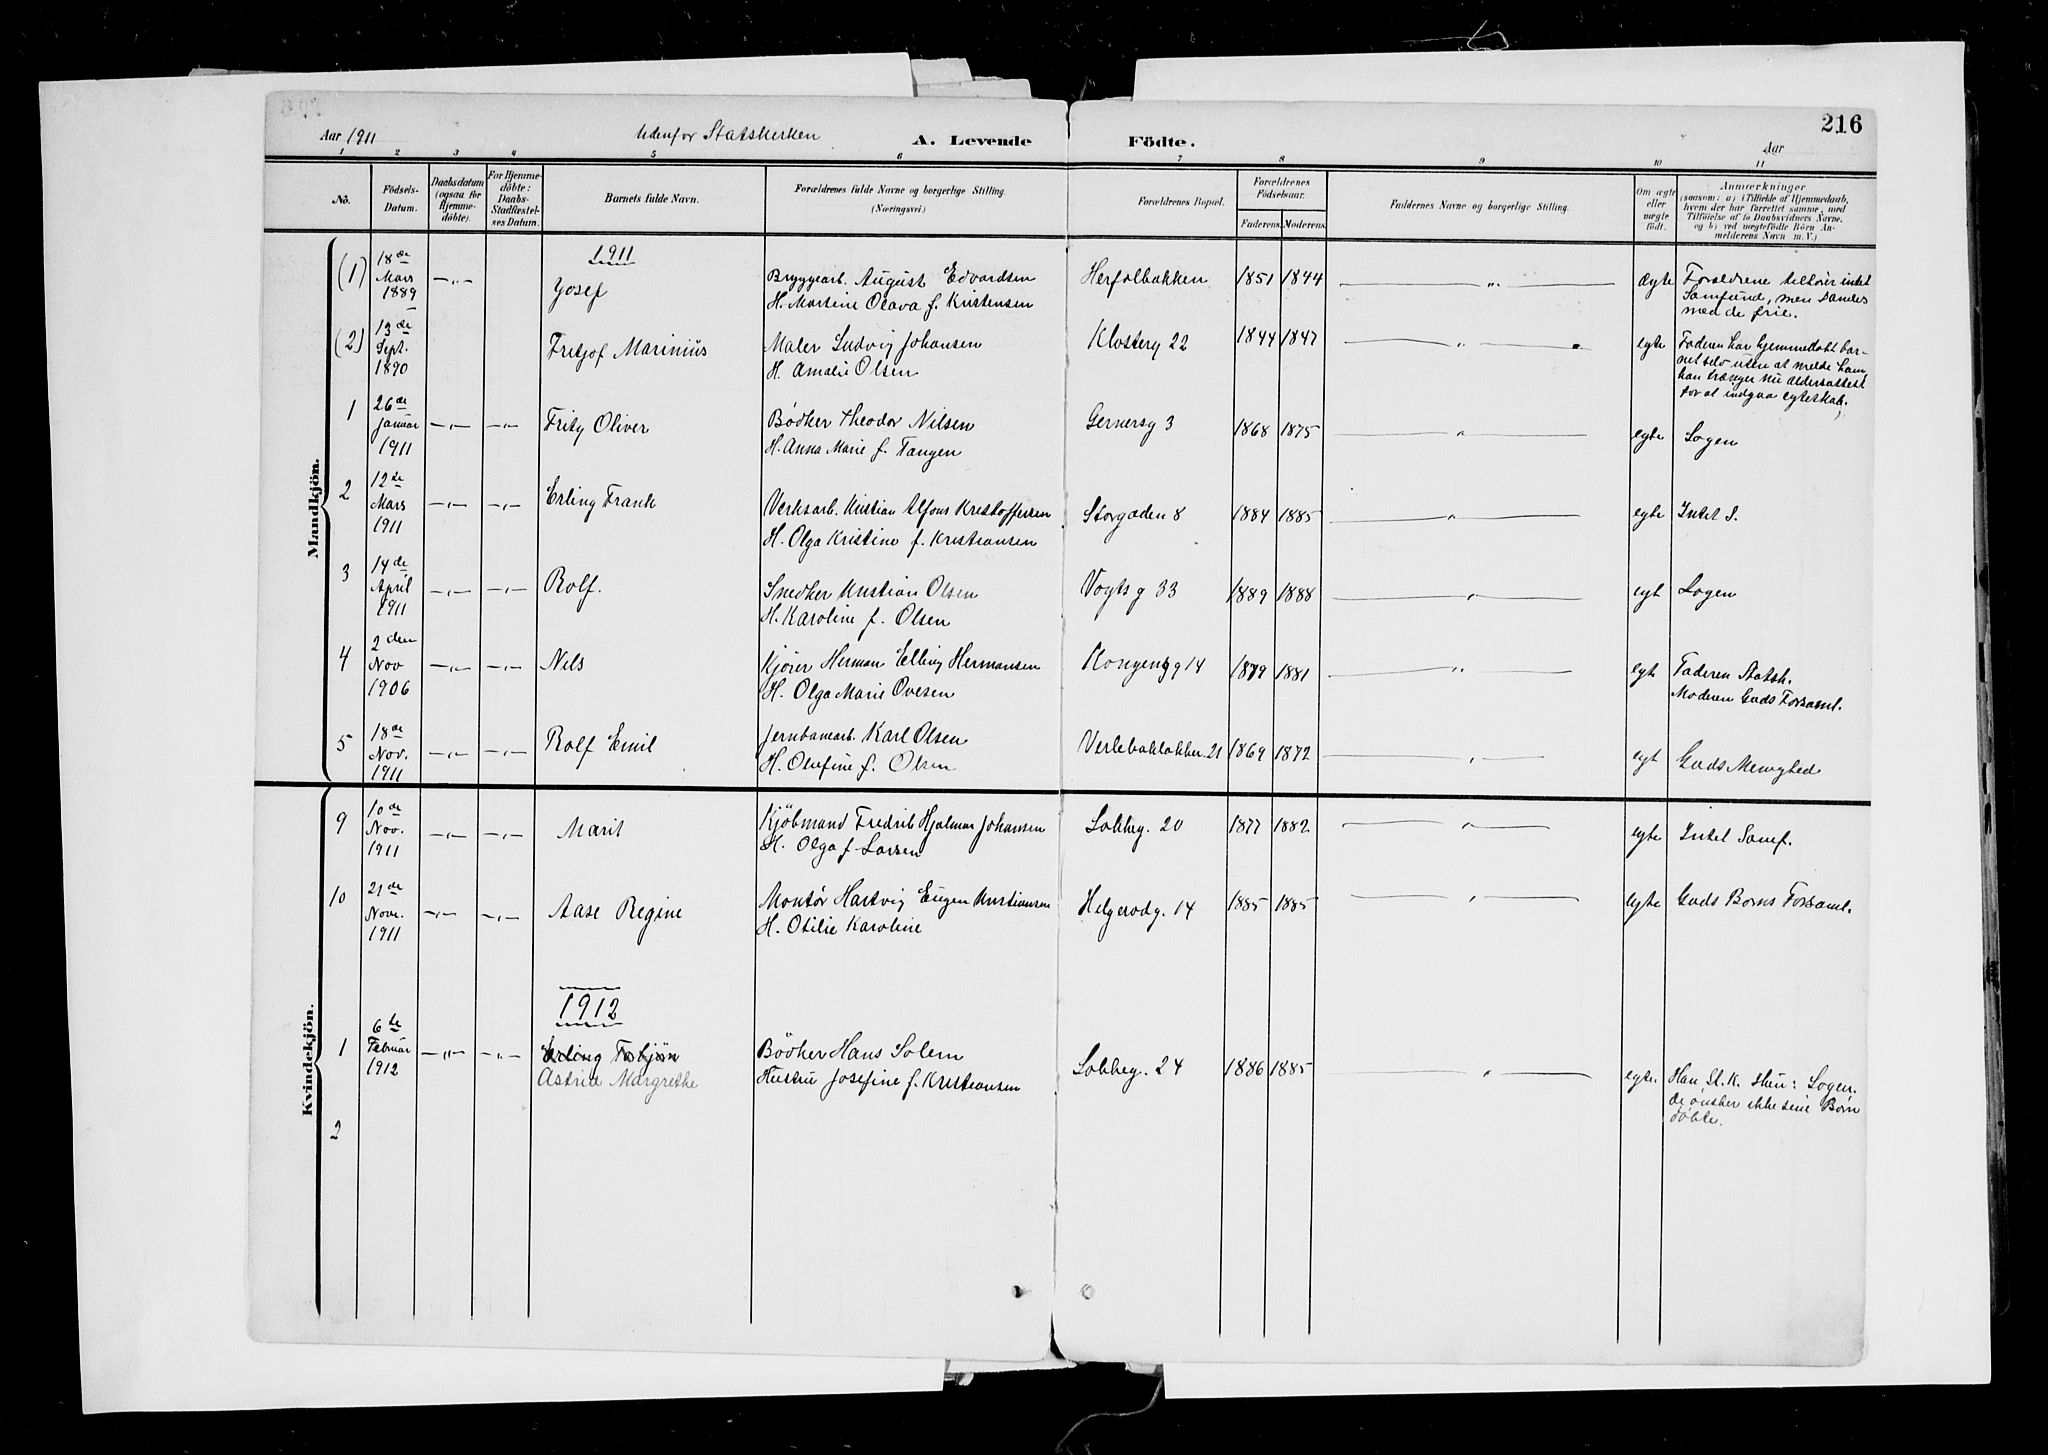 Aar 1911 Udenfor Statskirken A. Levende Födte. Aar 216
1 2 3 4 5 6 7 8 9 10 11
No. Födsels-Datum. Daabsdatum (ogsaa for Hjemmedöbte). For Hjemmedöbte: Daabs-Stadfæstelses Datum. Barnets fulde Navn. Forældrenes fulde Navne og borgerlige Stilling (Næringsvei.) Forældrenes Bopæl. Forældrenes Födselsaar. Faderens Moderens Faddernes Navne og borgerlige Stilling. Om ægte eller uægte födt. Anmærkninger
(saasom: a) i Tilfælde af Hjemmedaab,
hvem der har forrettet samme, med
Tilföielse af to Daabsvidners Navne,
og b) ved uægtefödte Börn An-
melderens Navn m. V.)
Mandkjön.
1911
(1) 18de Mars 1889 —„— Josef Bryggearb. August Edvardsen Herfolbakken 1851 1844 —„— Ægte Forældrene tilhører intet
H. Martine Olava f. Kristensen Samfund, men
med de frie.
(2) 13de Sept. 1890 Fritjof Marinius Maler Ludvig Johansen Klosterg 22 1844 1847 —„— egte Faderen har hjemmedøbt bar-
H. Amalie Olsen net selv uden at melde
han trænger nu aldersattest
for at indgaa egteskab.
1 26de Januar 1911 —„— —„— Fritz Oliver Bødker Theodor Nilsen Gernersg 3 1868 1875 —„— egte Logen
H. Anna Marie f. Tangen
2 12te Mars 1911 —„— —„— Erling Frank Verksarb. Kristian Alfons Kristoffersen Storgaden 8 1884 1885 —„— egte Intet S.
H. Olga Kristine f. Kristiansen
3 14de April 1911 —„— —„— Rolf. Snedker Kristian Olsen Vogtsg 33 1889 1888 —„— egt Logen
H. Karoline f. Olsen
4 2den Nov 1906 —„— —„— Nils Kjører Herman Elling Hermansen Kongensg 14 1879 1881 —„— egt Faderen Statsk.
H. Olga Marie Ovesen Moderen Guds Forsaml.
5 18de Nov. 1911 —„— —„— Rolf Emil Jernbanearb. Karl Olsen 21 1869 1872 —„— egt Guds Menighed
H. Olufine f. Olsen
Kvindekjön.
9 10de Nov. 1911 —„— —„— Marit Kjöbmand Fredrik Hjalmar Johansen Løkkeg. 20 1877 1882 —„— egte Intet Samf.
H. Olga f Larsen
10 21de Nov. 1911 —„— —„— Aase Regine Montør Hartvig Eugen Kristiansen Helgerødg. 14 1885 1885 —„— egte Guds Børns Forsaml.
H. Otilie Karoline
1912
1 6te Februar 1912 —„— —„— Erling Torbjørn Bödker Hans Solem Løkkeg. 24 1886 1885 —„— egte. Han St. K. Hun: Logen.
Astrid Margrethe Hustru Josefine f. Kristiansen de ønsker ikke sine Børn
døbte.
2